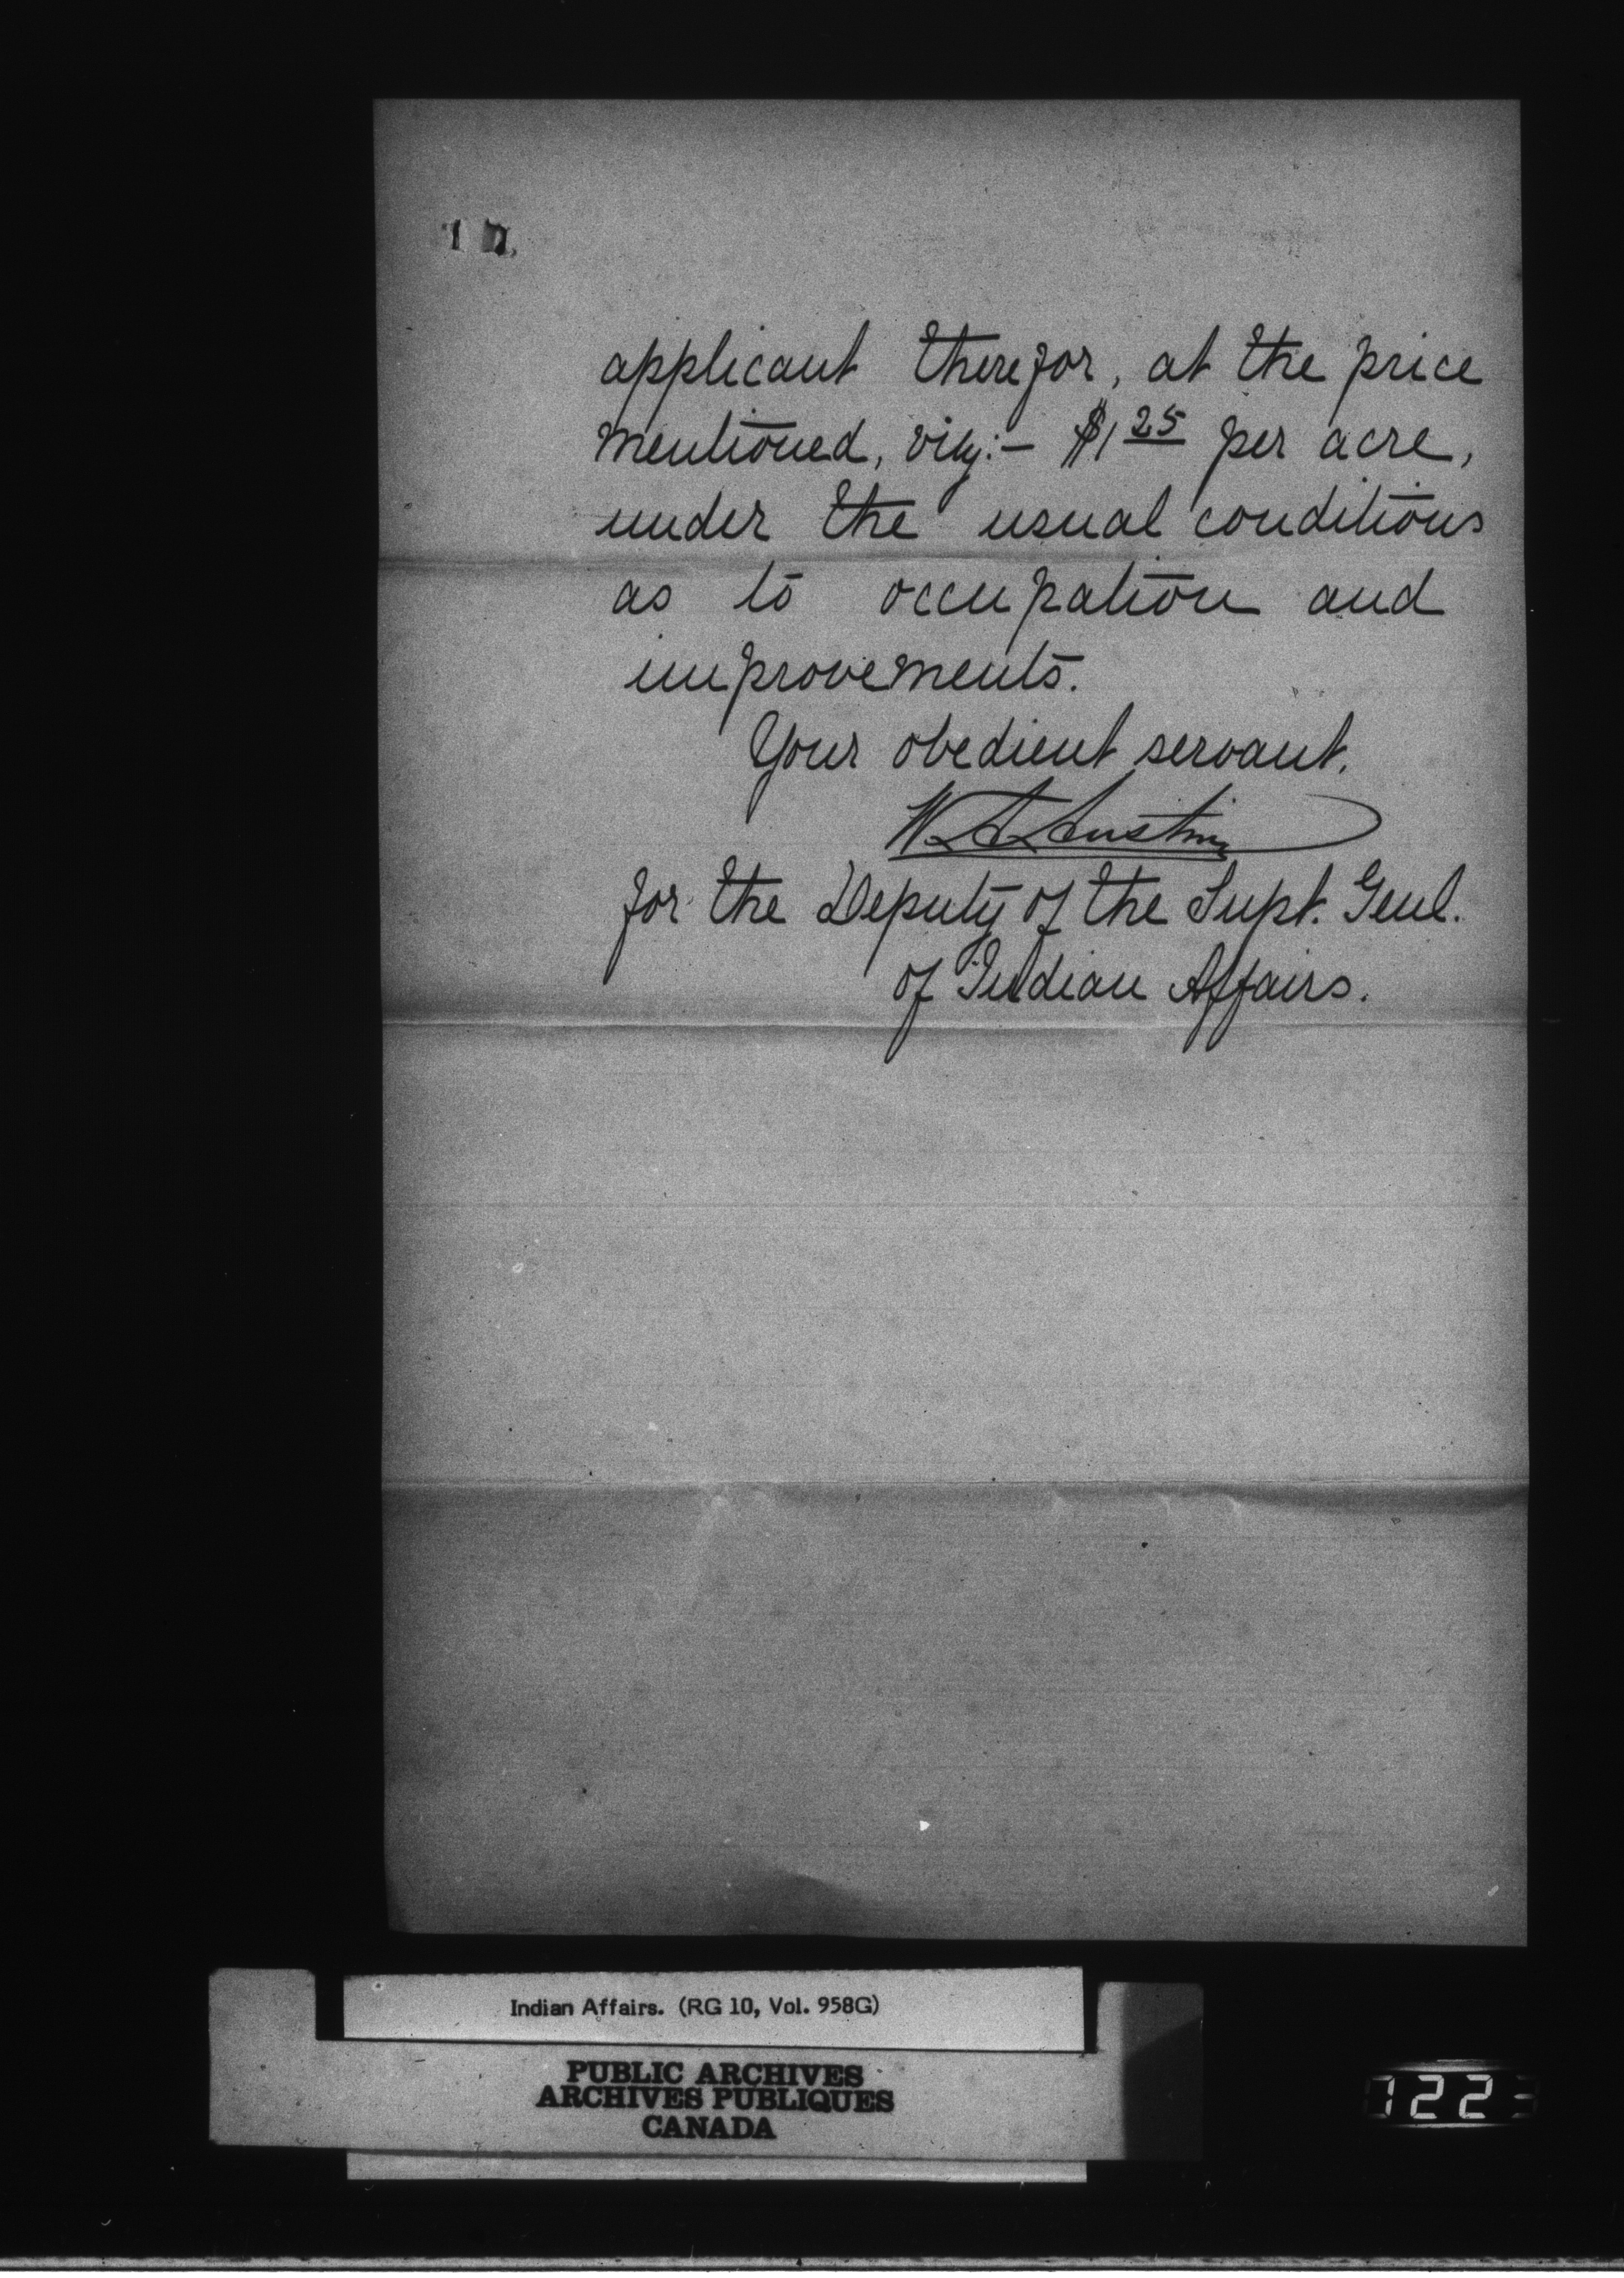 applicant therefor, at the price
mentioned, viz:— $1 25 per acre,
under the usual conditions
as to occupation and
improvements.
Your obedient servant.
W. A. Austin
for the Deputy of the Supt. Genl.
of Indian Affairs.
Indian Affairs. (RG 10, Vol. 958G)
PUBLIC ARCHIVES
ARCHIVES PUBLIQUES
CANADA
1223